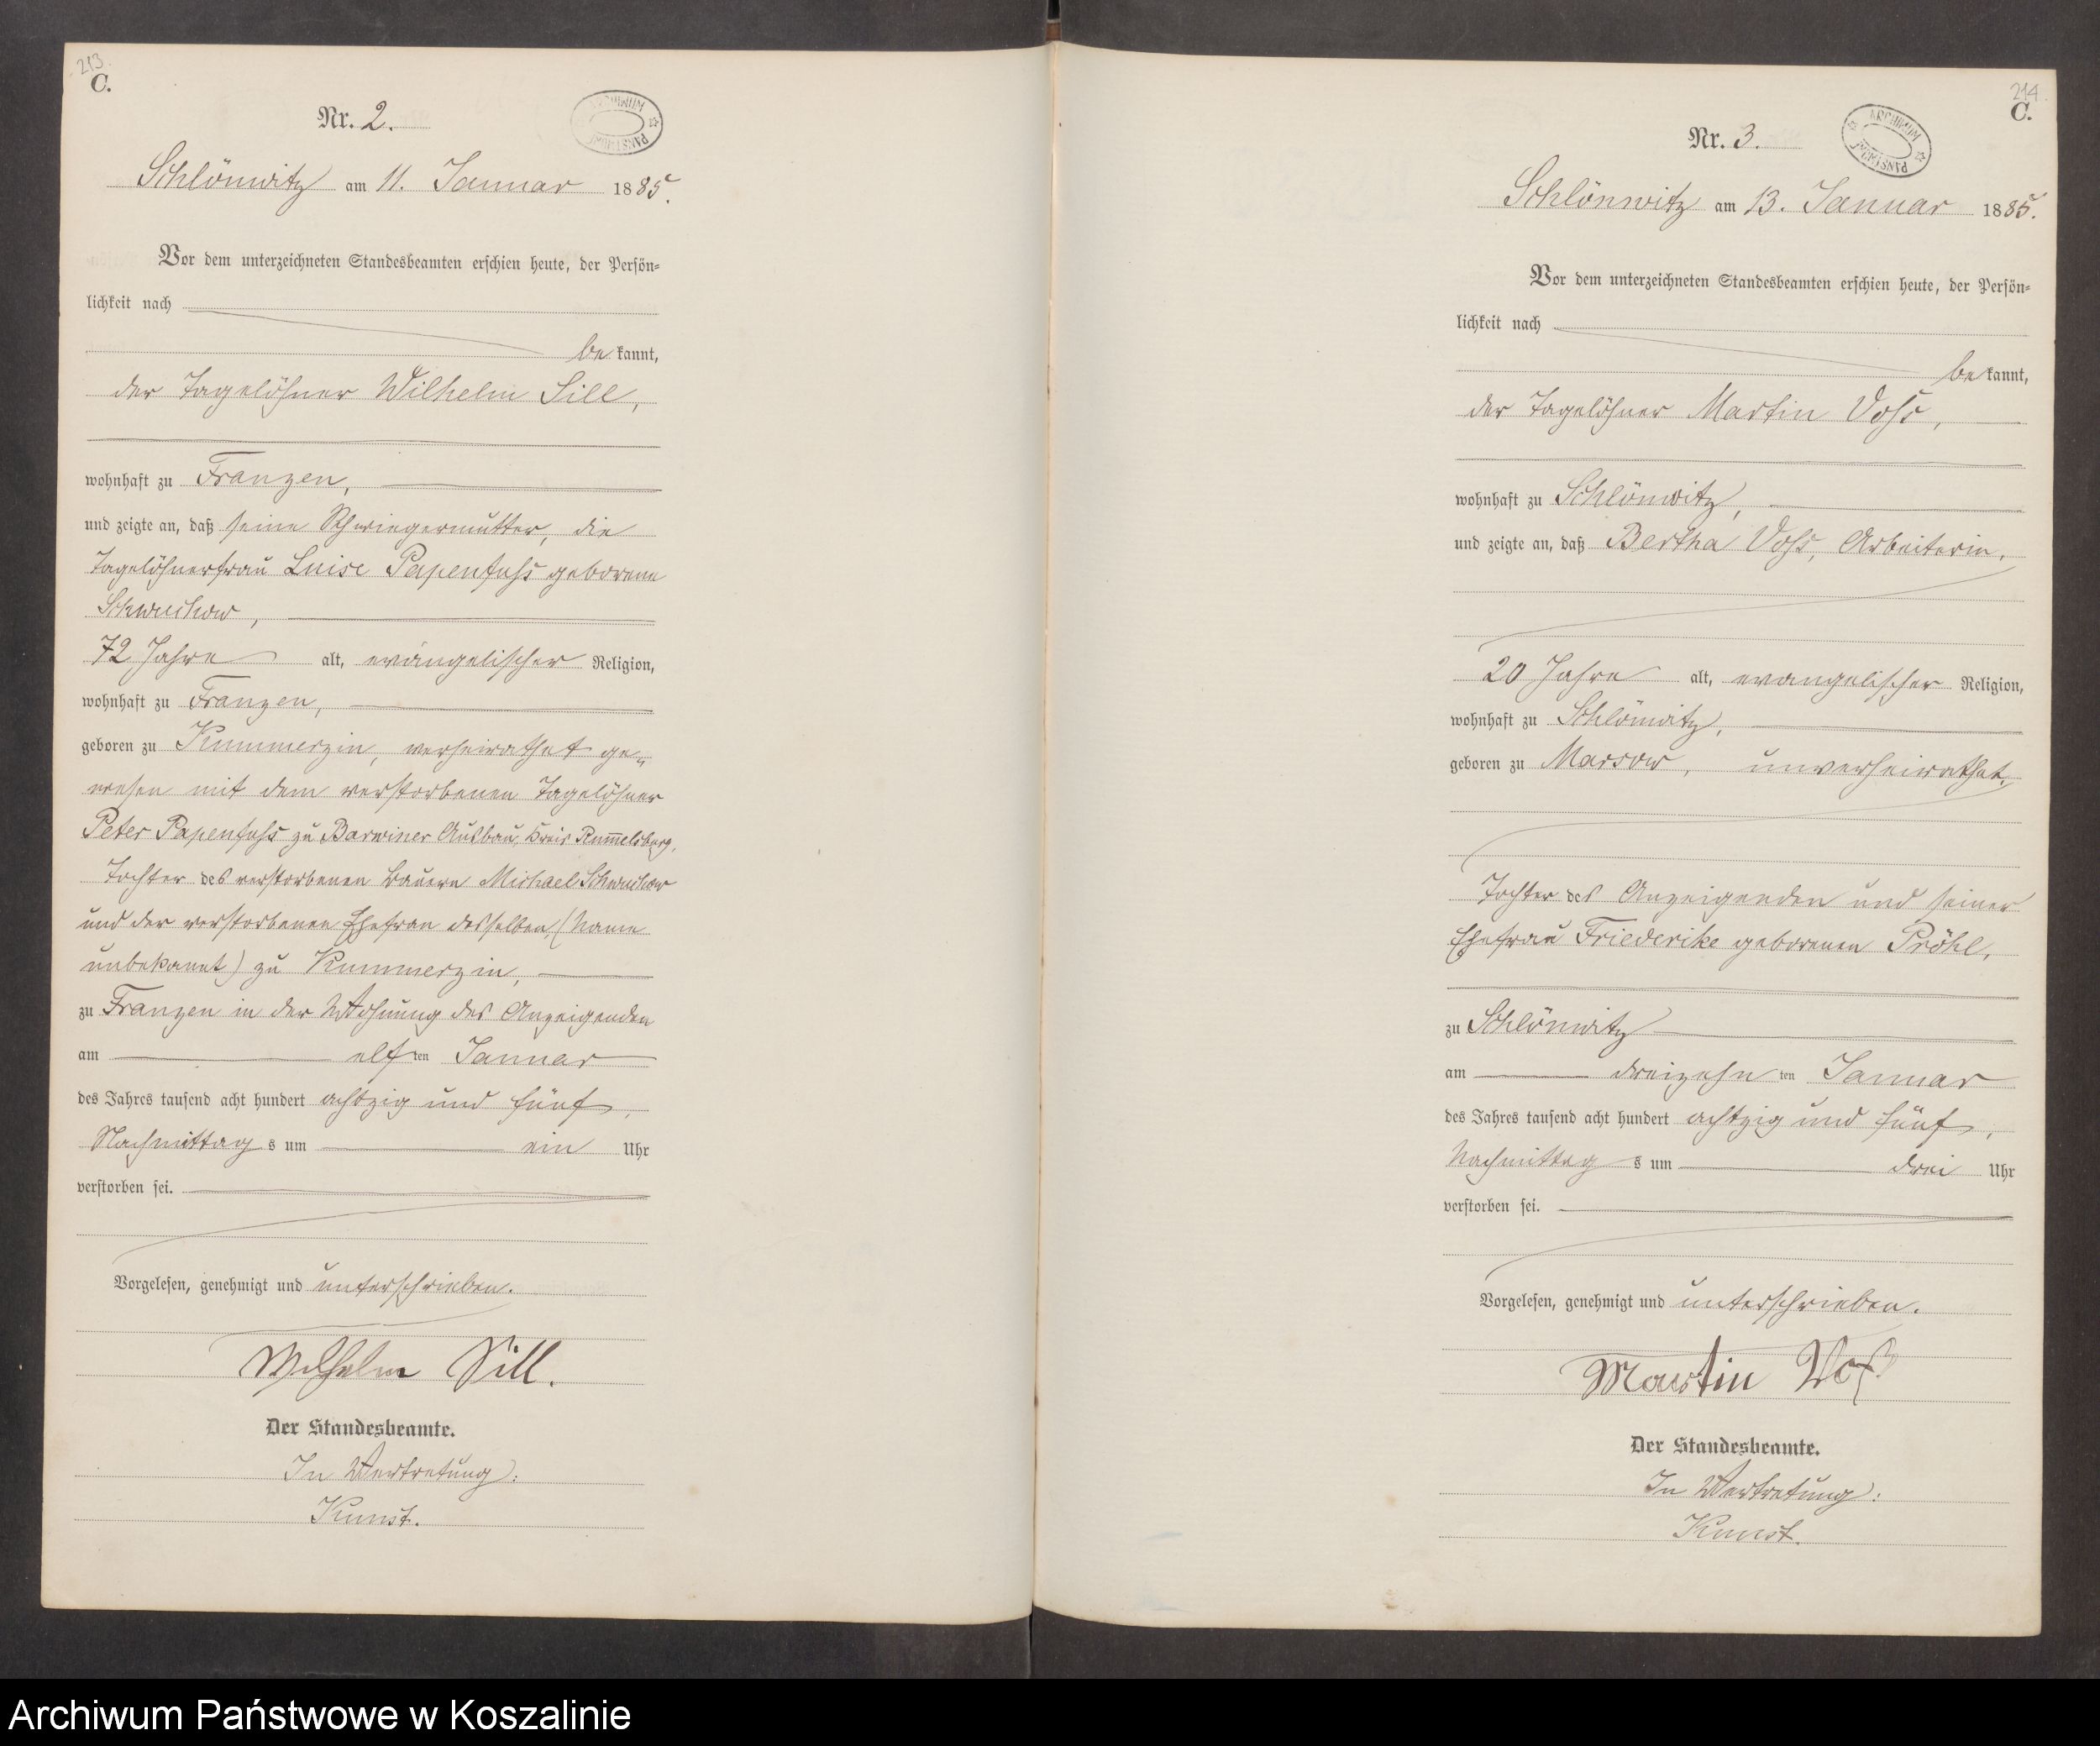 213.
C.
Nr. 2.
ARCHIWUM
PAŃSTWOWE
Schlönwitz am 11. Januar 1885.
Vor dem unterzeichneten Standesbeamten erschien heute, der Persön-
lichkeit nach
bekannt,
der Tagelöhner Wilhelm Sill,
wohnhaft zu Franzen,
und zeigte an, daß seine Schwiegermutter, die
Tagelöhnerfrau Luise Papenfuhs geborene
Schwuchow,
72 Jahre alt, evangelischer Religion,
wohnhaft zu Franzen,
geboren zu Kummerzin, verheirathet ge-
wesen mit dem verstorbenen Tagelöhner
Peter Papenfuhs zu Barwiner Ausbau, Kreis Rummelsburg,
Tochter des verstorbenen Bauern Michael Schwuchow
und der verstorbenen Ehefrau desselben, (Name
unbekannt) zu Kummerzin,
zu Franzen in der Wohnung des Anzeigenden
am elften Januar
des Jahres tausend acht hundert achtzig und fünf,
Nachmittags um ein Uhr
verstorben sei.
Vorgelesen, genehmigt und unterschrieben.
Wilhelm Sill.
Der Standesbeamte.
In Vertretung:
Kunst.
214.
C.
Nr. 3.
ARCHIWUM
PAŃSTWOWE
Schlönwitz am 13. Januar 1885.
Vor dem unterzeichneten Standesbeamten erschien heute, der Persön-
lichkeit nach
bekannt,
der Tagelöhner Martin Vohs,
wohnhaft zu Schlönwitz,
und zeigte an, daß Bertha Vohs, Arbeiterin,
20 Jahre alt, evangelischer Religion,
wohnhaft zu Schlönwitz,
geboren zu Marsow, unverheirathet,
Tochter des Anzeigenden und seiner
Ehefrau Friederike geborenen Pröhl,
zu Schlönwitz
am dreizehnten Januar
des Jahres tausend acht hundert achtzig und fünf,
Nachmittags um drei Uhr
verstorben sei.
Vorgelesen, genehmigt und unterschrieben.
Martin Voß
Der Standesbeamte.
In Vertretung:
Kunst.
Archiwum Państwowe w Koszalinie